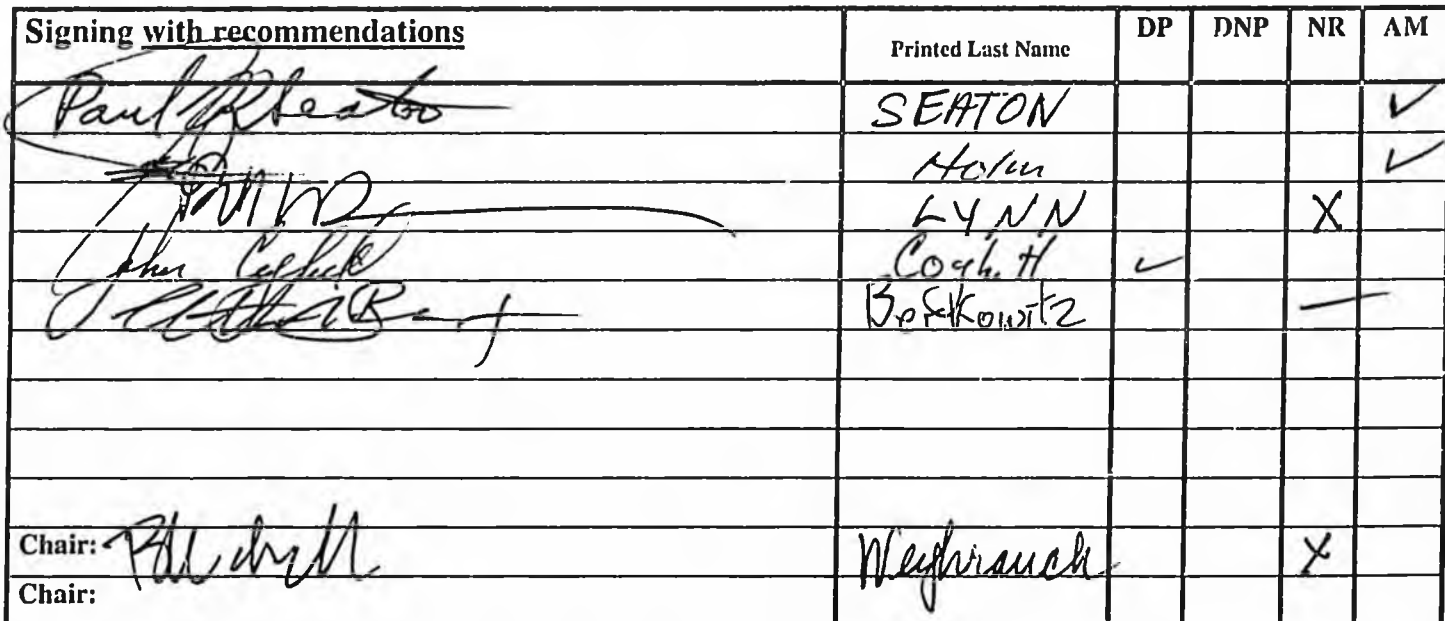 Signing with recommendations Printed Last Name DP DNP NR AM
Paul Seaton SEATON ✓
Holm ✓
LYNN X
John Coghill Coghill ✓
Berkowitz —
Chair: Weyhrauch X
Chair: